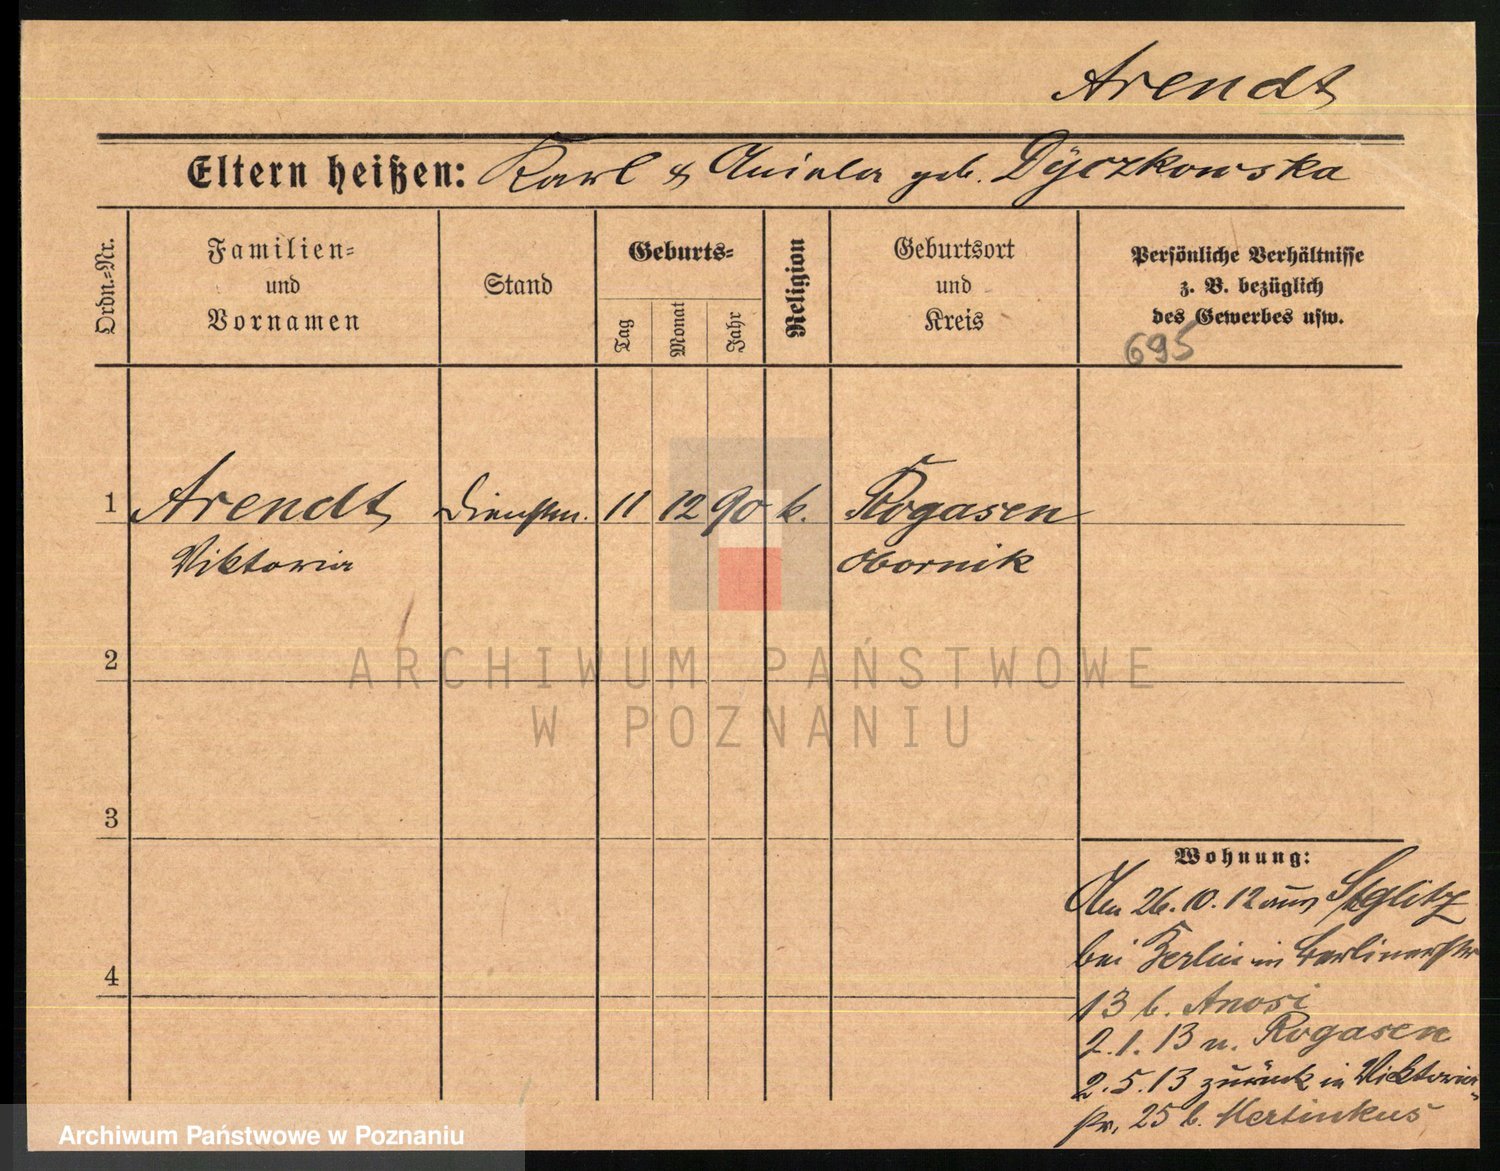 Arendt
Eltern heißen: Karl & Aniela geb. Dyczkowska
Ordn.-Nr.
Familien-
und
Vornamen
Stand
Geburts-
Tag
Monat
Jahr
Religion
Geburtsort
und
Kreis
Persönliche Verhältnisse
z. B. bezüglich
des Gewerbes usw.
695
1 Arendt Dienstm. 11 12 90 k. Rogasen
Viktoria Obornik
2
3
4
Wohnung:
Am 26.10.12 aus Stglitz
bei Berlin in Berlinerstr
13 b. Anosi
2.1.13 n. Rogasen
2.5.13 zurück in Viktoria-
str. 25 b. Mertinkus
ARCHIWUM PAŃSTWOWE
W POZNANIU
Archiwum Państwowe w Poznaniu